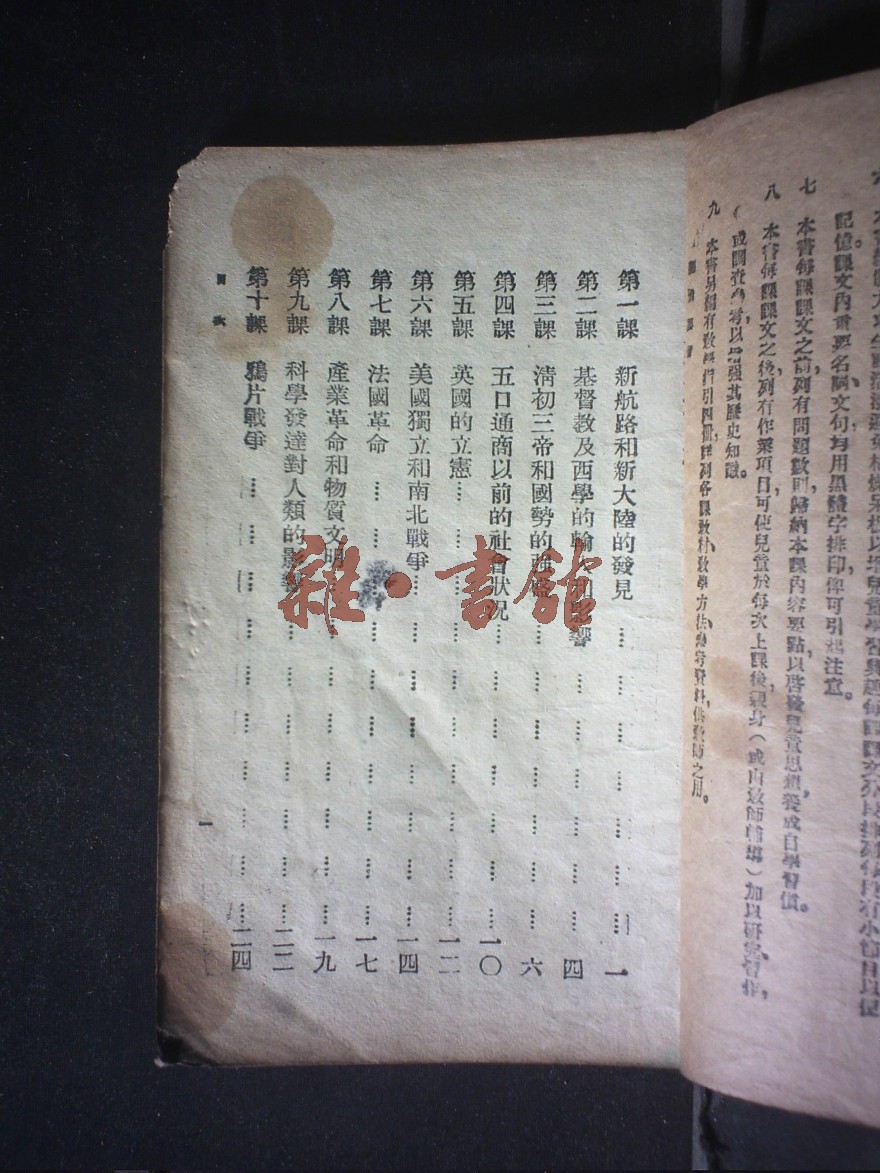 記憶。課文內重要名詞文句均用黑體字排印，俾可引起注意。
七　本書每課課文之前，列有問題數則，歸納本課內容要點，以啓發兒童思想，養成自學習慣。
八　本書每課課文之後，列有作業項目，可使兒童於每次上課後，親身（或由敎師輔導）加以硏究習作，
或調查，以增强其歷史知識。
九　本書另編有敎學指引四冊，詳列各課敎材敎學方法參考資料，供敎師之用。
第一課　新航路和新大陸的發見…………一
第二課　基督敎及西學的輸入和影響…………四
第三課　淸初三帝和國勢的强盛…………六
第四課　五口通商以前的社會狀况…………一〇
第五課　英國的立憲…………一二
第六課　美國獨立和南北戰爭…………一四
第七課　法國革命…………一七
第八課　產業革命和物質文明…………一九
第九課　科學發達對人類的影響…………二二
第十課　鴉片戰爭…………二四
目次
一
雜·書館